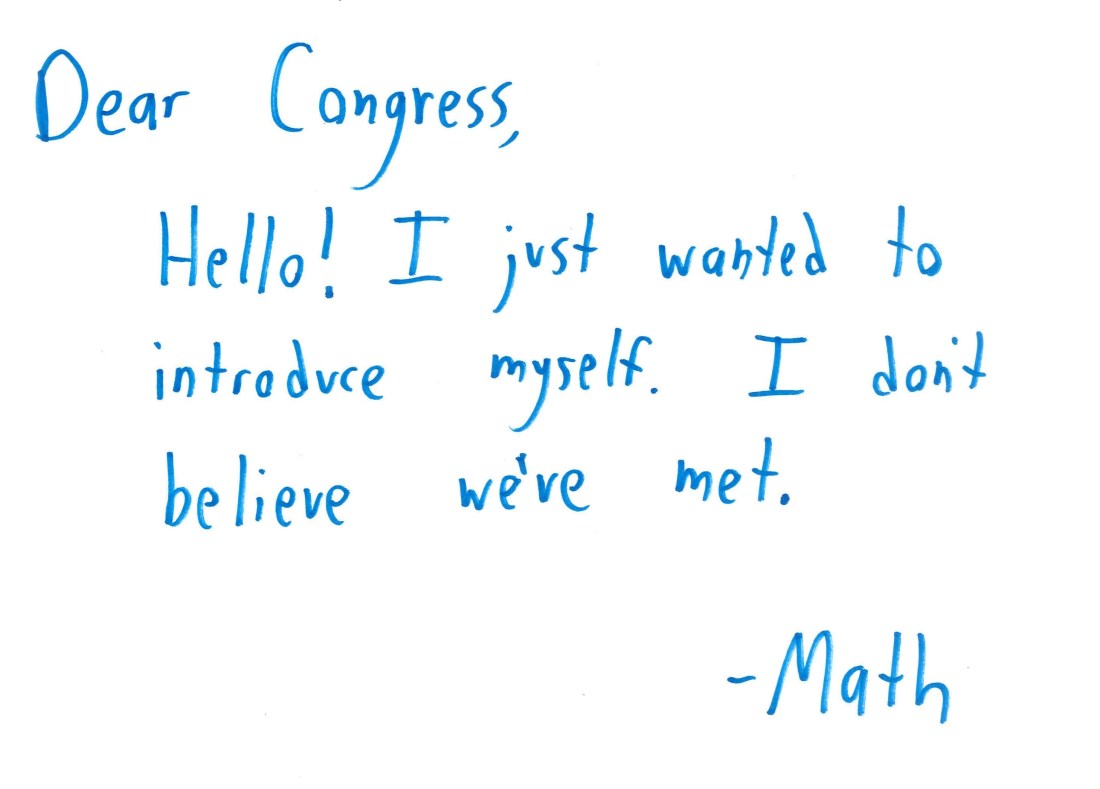 Dear Congress,
Hello! I just wanted to
introduce myself. I don't
believe we've met.
-Math